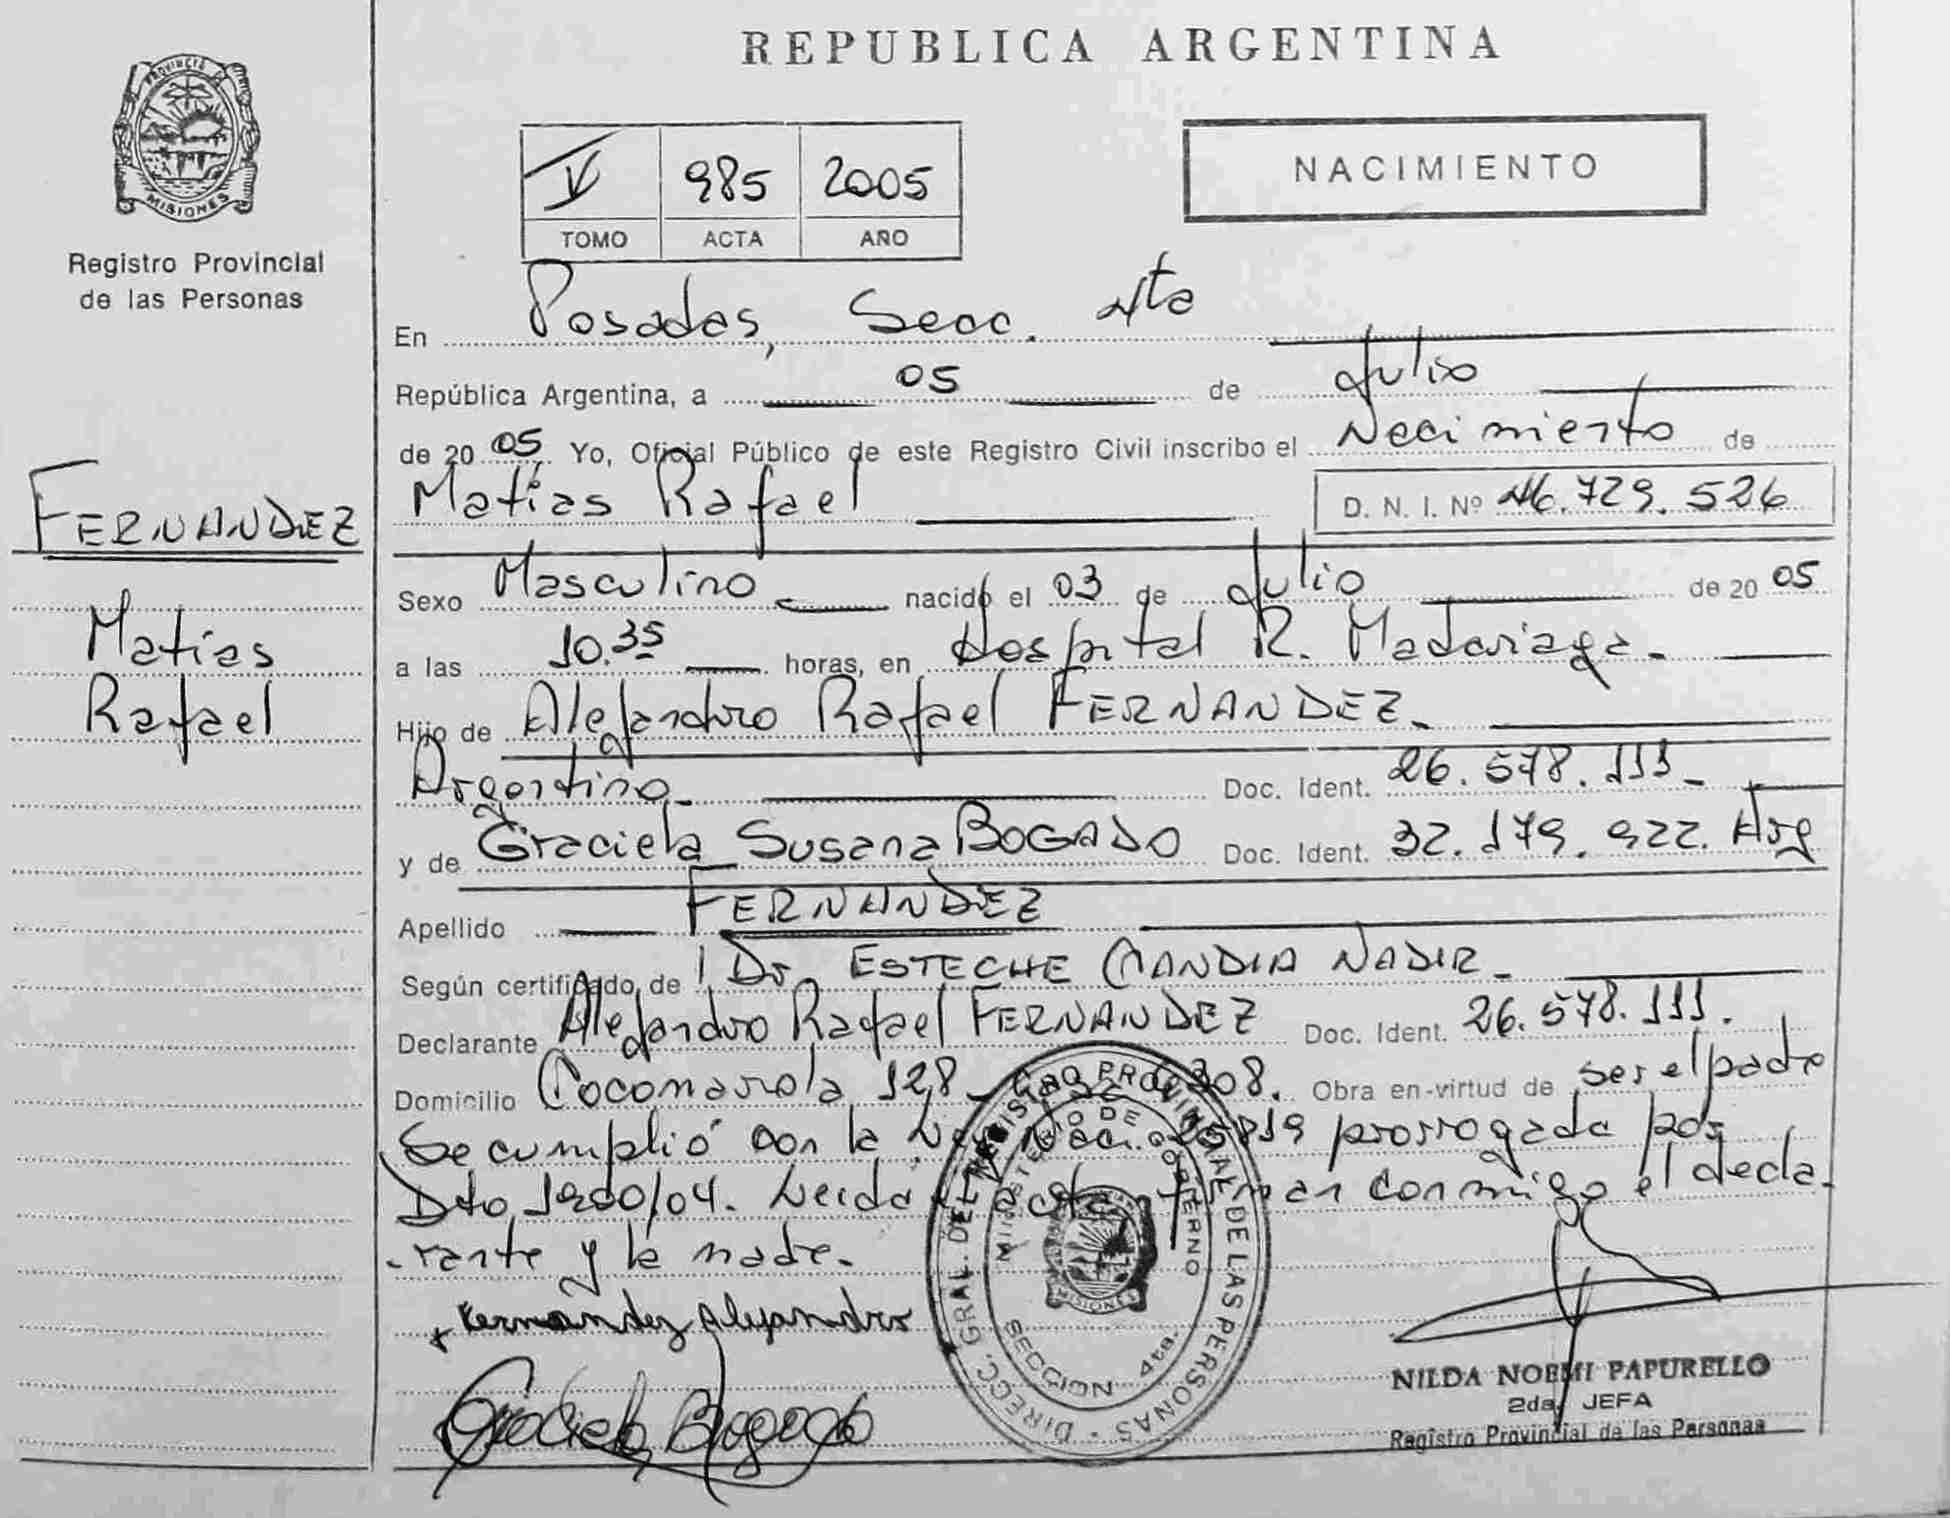 REPUBLICA ARGENTINA
PROVINCIA DE MISIONES
Registro Provincial
de las Personas
V 985 2005
TOMO ACTA AÑO
NACIMIENTO
FERNANDEZ
Matías
Rafael
En Posadas, Secc. 4ta
República Argentina, a 05 de Julio
de 2005 Yo, Oficial Público de este Registro Civil inscribo el Nacimiento de
Matías Rafael D. N. I. Nº 46.729.526
Sexo Masculino nacido el 03 de Julio de 2005
a las 10.35 horas, en Hospital R. Madariaga.
Hijo de Alejandro Rafael FERNANDEZ.
Argentino. Doc. Ident. 26.578.111.
y de Graciela Susana BOGADO Doc. Ident. 32.179.922. Arg
Apellido FERNANDEZ
Según certificado de Dr. ESTECHE CANDIA NADIR.
Declarante Alejandro Rafael FERNANDEZ Doc. Ident. 26.578.111.
Domicilio Cocomarola 128 Obra en virtud de ser el padre
Se cumplió con la Ley Nac. 25819 prorrogada por
Dto 1200/04. Leida el acta, firman conmigo el decla-
-rante y la madre.
Fernandez Alejandro
Graciela Bogado
DIRECC. GRAL. DEL REGISTRO PROVINCIAL DE LAS PERSONAS
MINISTERIO DE GOBIERNO
MISIONES
SECCION 4ta.
NILDA NOEMI PAPURELLO
2da. JEFA
Registro Provincial de las Personas